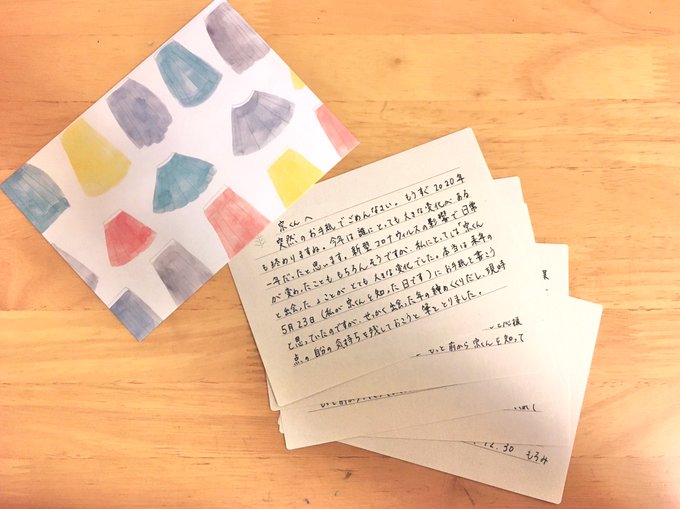 宗くんへ
突然のお手紙でごめんなさい。もうすぐ2020年
も終わりますね。今年は誰にとっても大きな変化のある
一年だったと思います。新型コロナウィルスの影響で日常
が変わったことももちろんそうですが、私にとっては「宗くん
と出会ったことがとても大きな変化でした。本当は来年の
5月23日(私が宗くんを知った日です)にお手紙を書こう
と思っていたのですが、せっかく出会えた年の締めくくりだし、現時
点の自分の気持ちを残しておこうと筆をとりました。
と前から宗くんを知って
12.30 もろみ